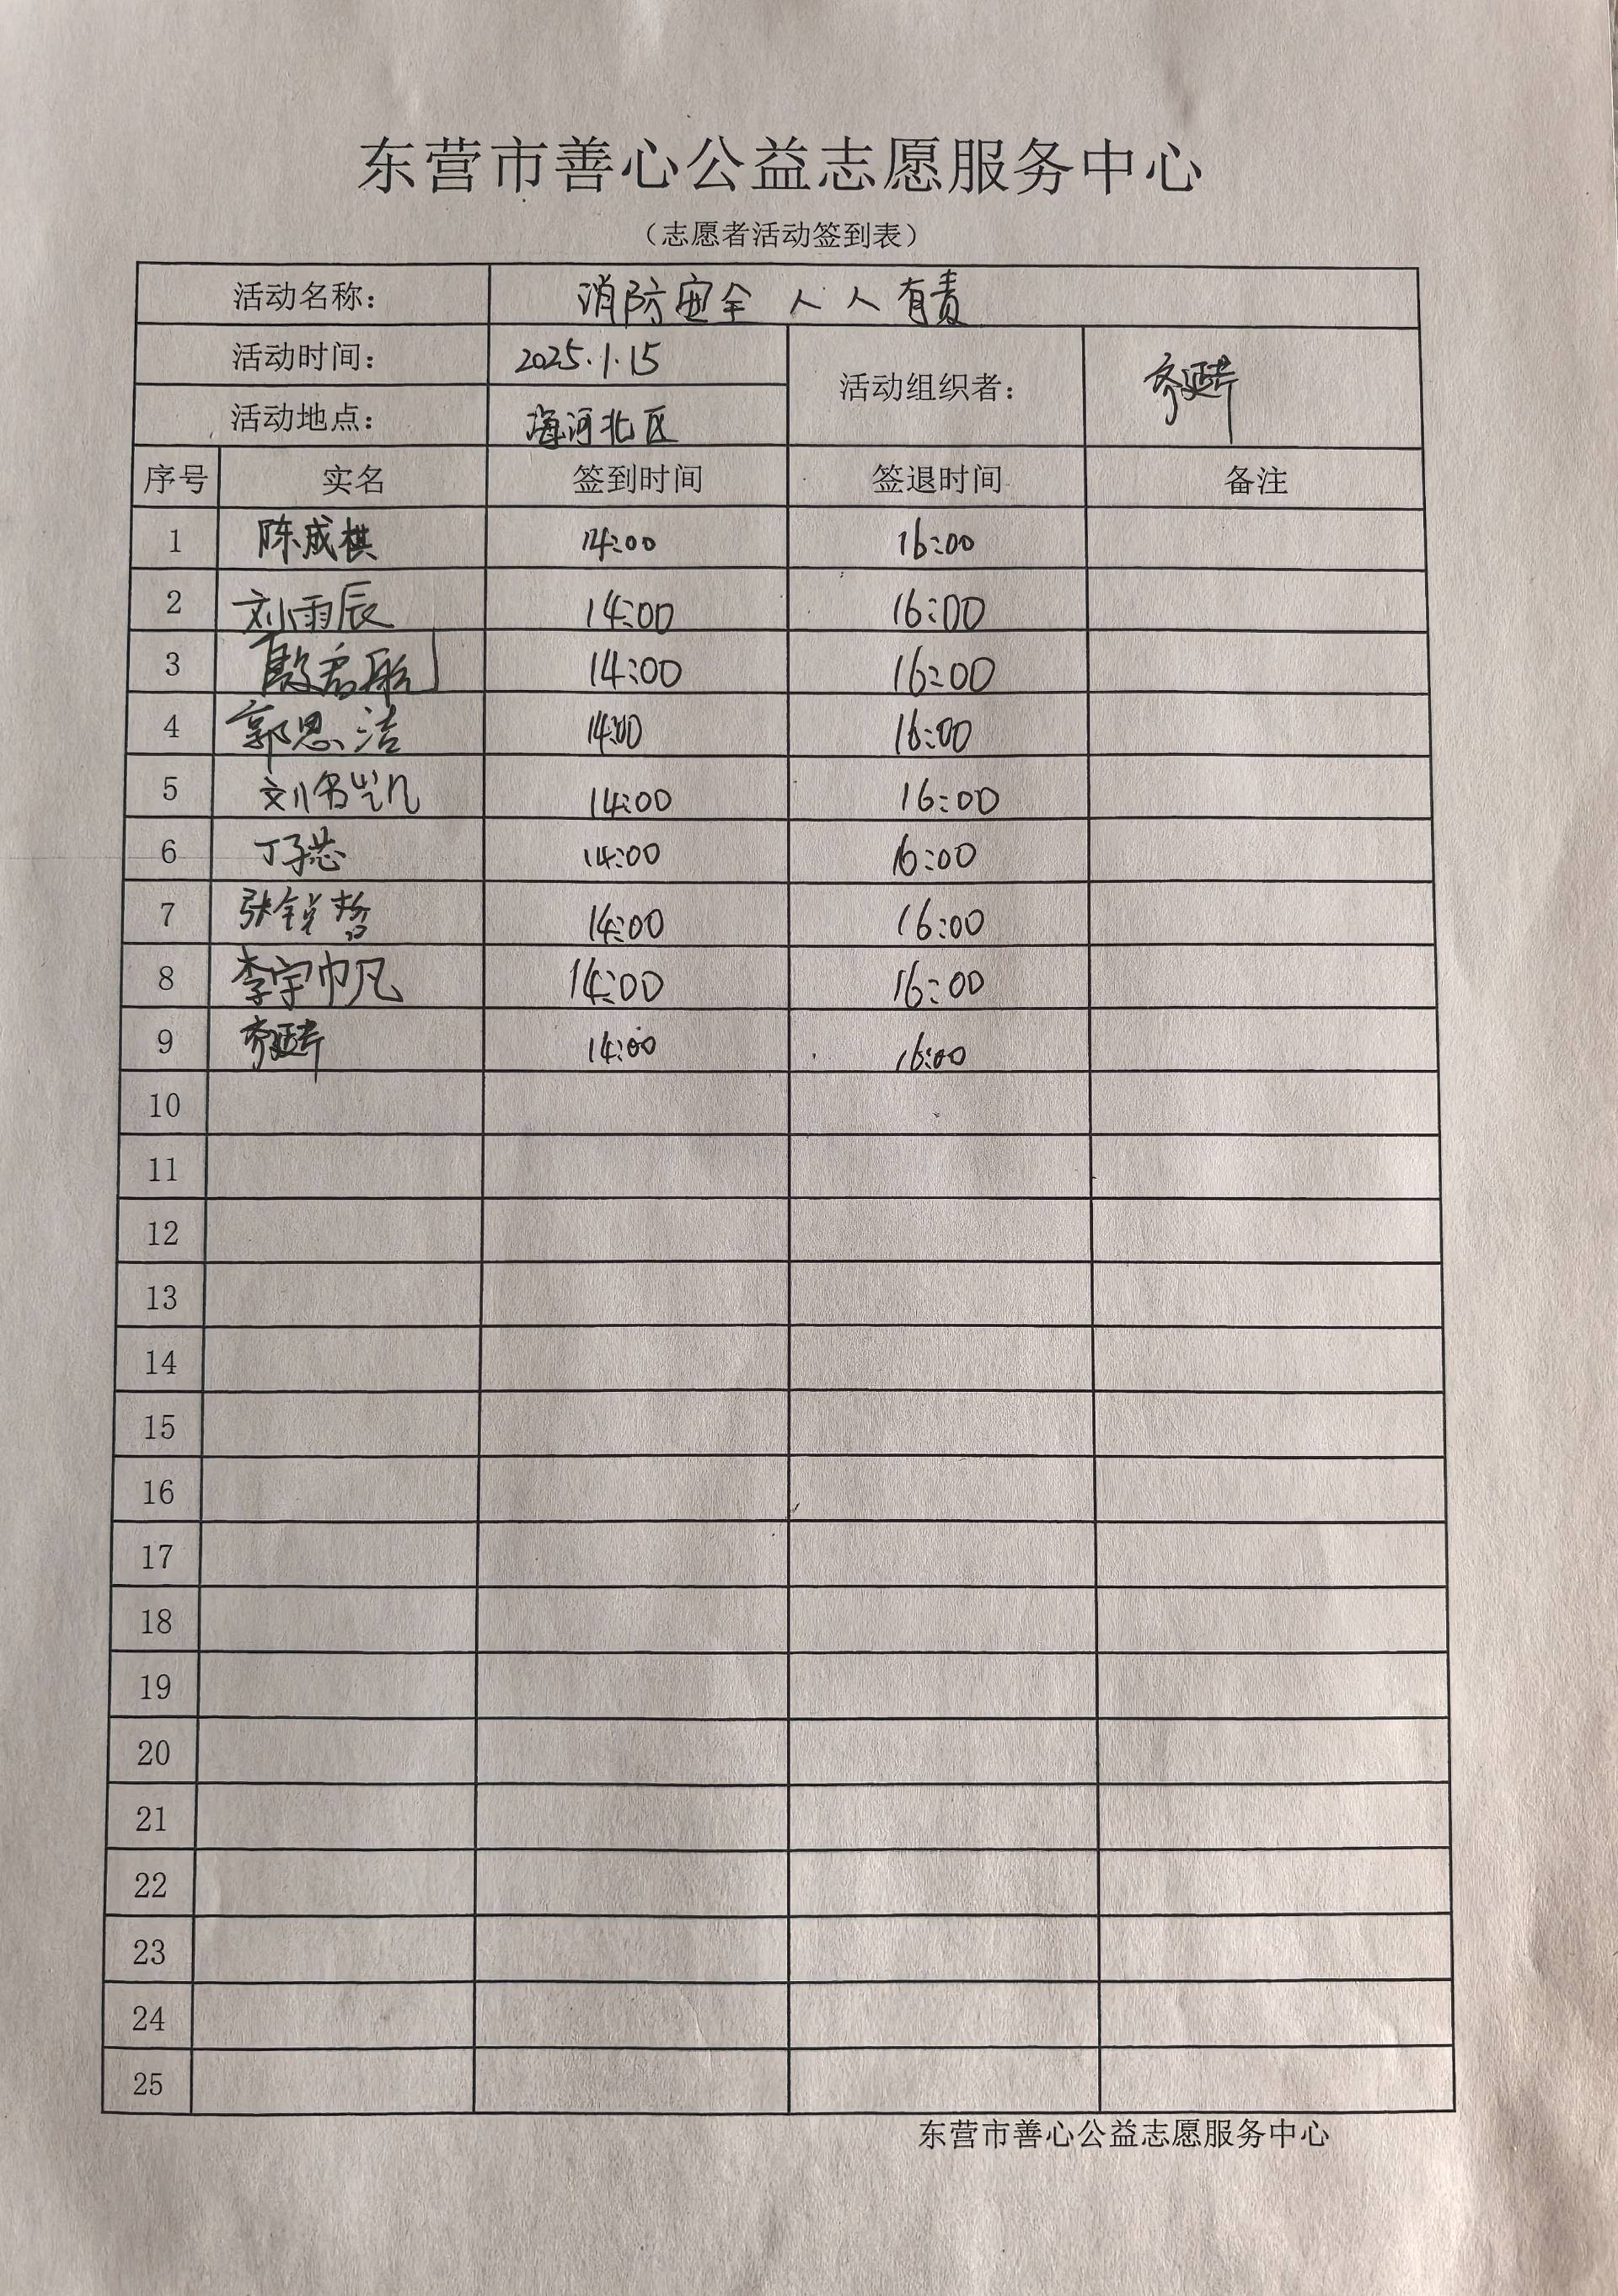 东营市善心公益志愿服务中心
（志愿者活动签到表）
活动名称： 消防安全 人人有责
活动时间： 2025.1.15 活动组织者：
活动地点： 海河北区
序号 实名 签到时间 签退时间 备注
1 陈成棋 14:00 16:00
2 刘雨辰 14:00 16:00
3 殷君航 14:00 16:00
4 郭思洁 14:00 16:00
5 刘名岂凡 14:00 16:00
6 丁子芯 14:00 16:00
7 张锐哲 14:00 16:00
8 李宇帆 14:00 16:00
9 14:00 16:00
10
11
12
13
14
15
16
17
18
19
20
21
22
23
24
25
东营市善心公益志愿服务中心